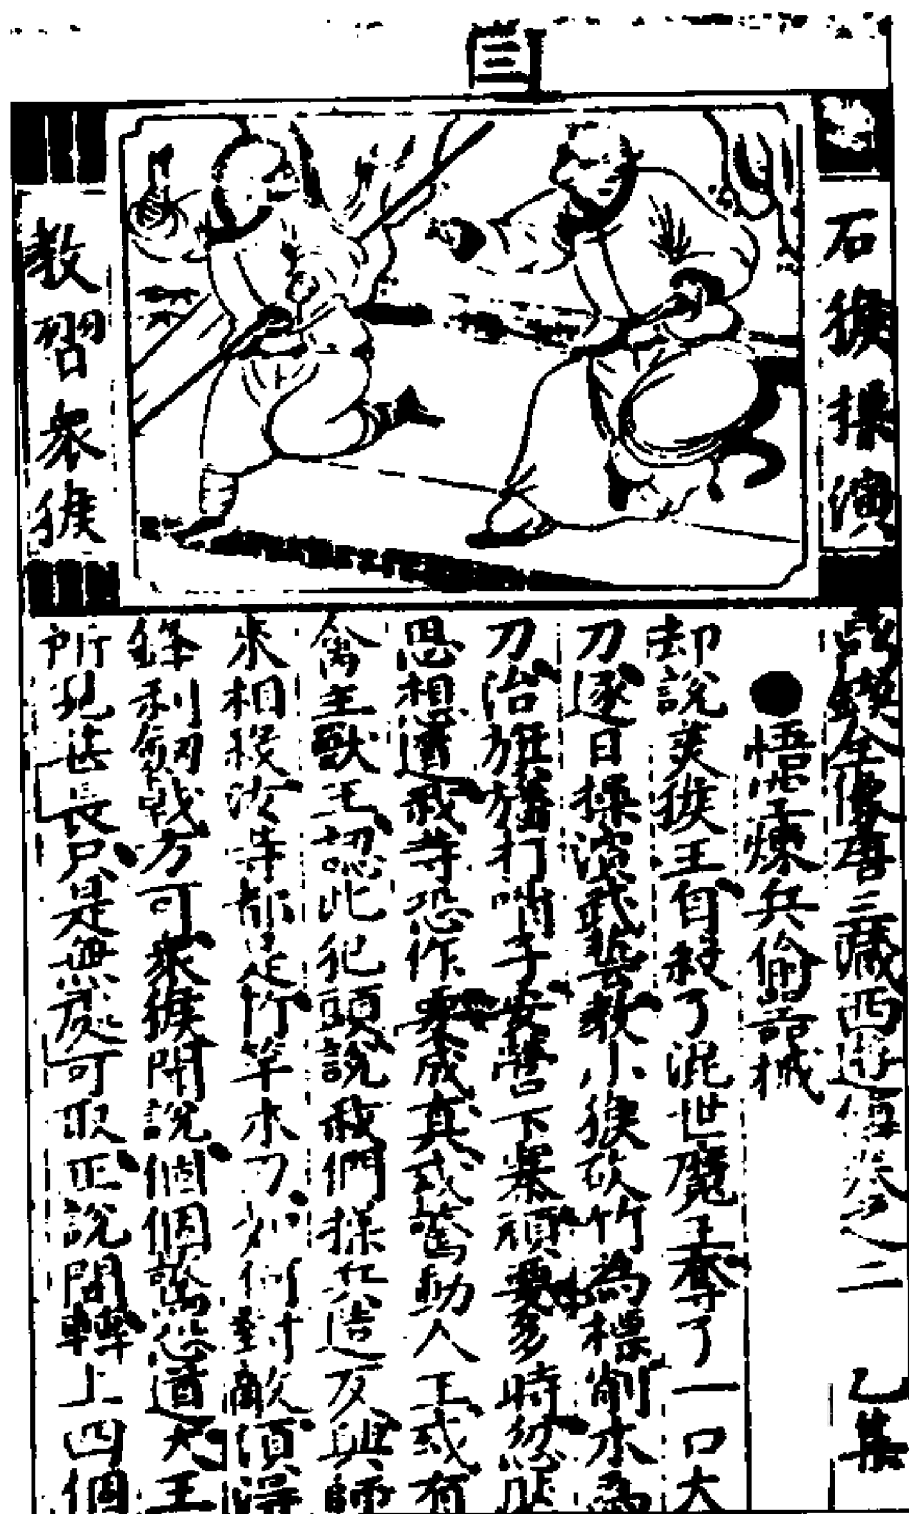 三
石猴操演
教習衆猴
鼎鍥全像唐三藏西遊傳卷之二 乙集
●悟空煉兵偷器械
却說美猴王自殺了混世魔王奪了一口大
刀逐日操演武藝教小猴砍竹為標削木為
刀治旌旛打哨子安營下寨頑耍多時忽然
思相道我等恐作耍成真或驚動人王或有
禽王獸王認此犯頭說我們操兵造反興師
來相殺汝等都是竹竿木刀如何對敵須得
鋒利劍戟方可衆猴聞說個個驚恐道大王
所見甚長只是無處可取正說間轉上四個